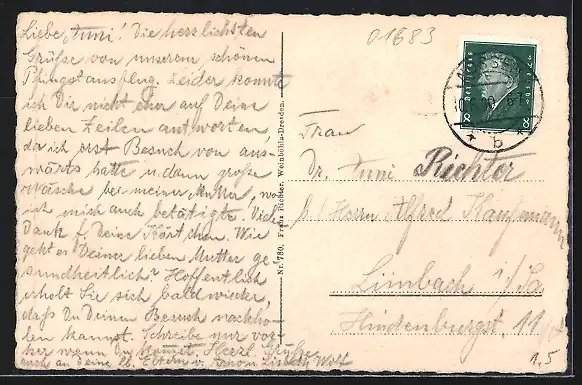 Liebe Tuni! Die herzlichsten
Grüße von unserem schönen
Pfingstausflug. Leider konnte
ich Dir nicht eher auf Deine
lieben Zeilen antworten
da ich erst Besuch von aus-
wärts hatte u. dann große
Wäsche bei meiner Mutter, wo
ich mich auch betätigte. Viel
Dank f. Deine Kärtchen. Wie
geht es Deiner lieben Mutter ge-
sundheitlich? Hoffentlich
erholt Sie sich bald wieder,
daß Du Deinen Besuch nachho-
len kannst. Schreibe nur vor-
her wenn Du kommst. Herzl. Grüße
auch an Deine lb. Eltern v. Lisbeth Wolf
Nr. 780. Franz Richter, Weinböhla-Dresden.
01683
DEUTSCHES REICH
8 8
b
Frau
Dr. Tuni Richter
b/ Herrn Alfred Kaufmann
Limbach i/Sa
Hindenburgst. 11
1,5